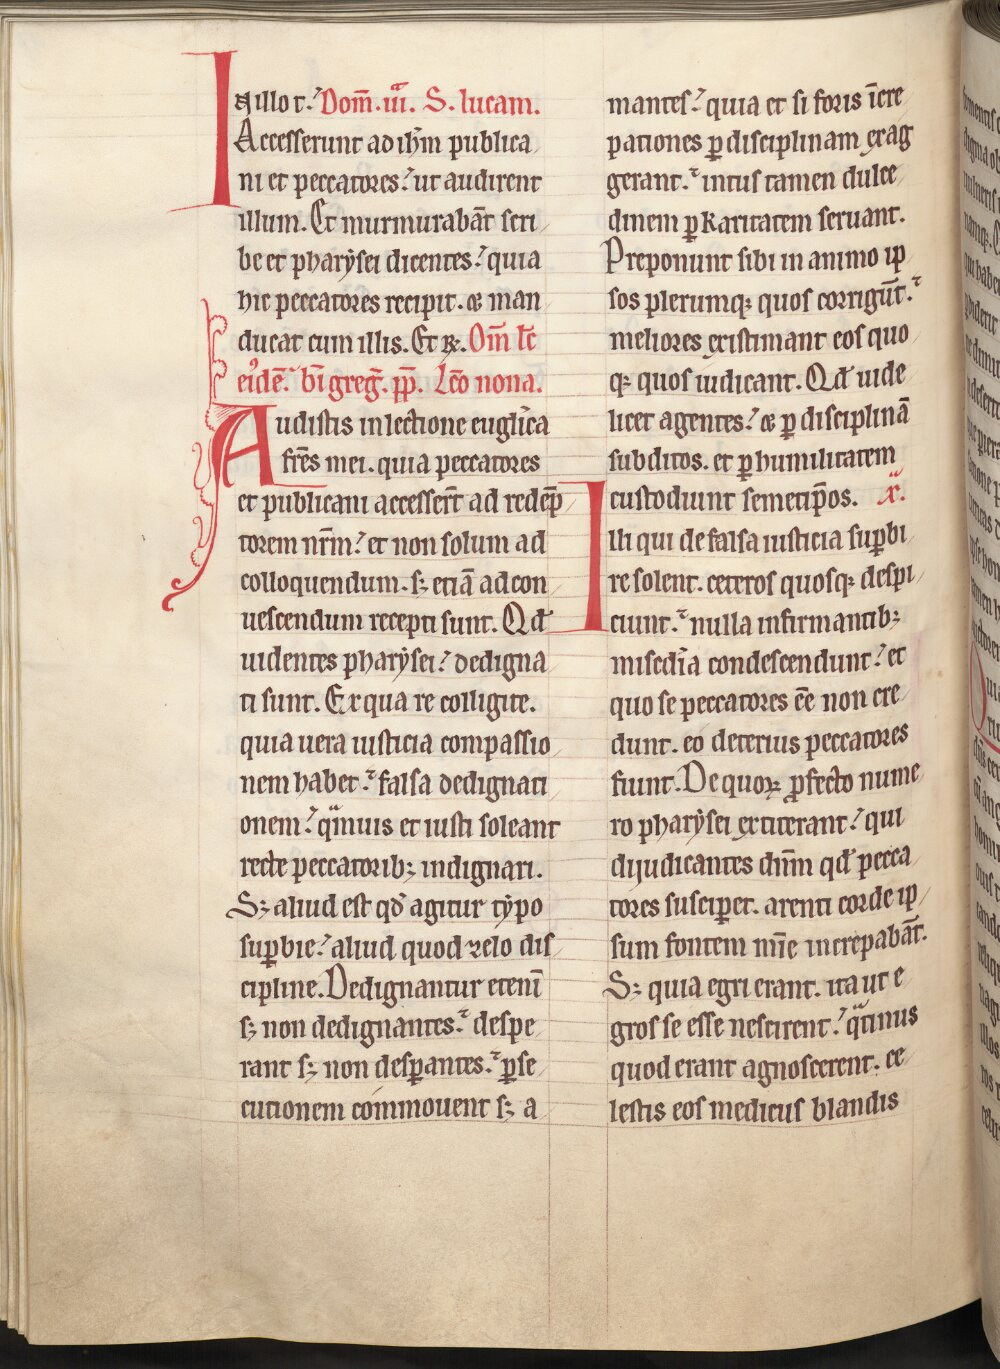 In illo t. Dom̄. iii. S. lucam.
Accesserunt ad ih̄m publica
ni et peccatores. ut audirent
illum. Et murmurabāt scri
be et pharẏsei dicentes. quia
hic peccatores recipit. & man
ducat cum illis. Et R. Om̄ lc̄
eiꝰdē. bī greḡ. pp̄. Lc̄o nona.
Audistis in lectione euglīca
fr̄es mei. quia peccatores
et publicani accesser̄t ad redēp
torem nr̄m. et non solum ad
colloquendum. sꝫ etiā ad con
uescendum recepti sunt. Qđ
uidentes pharẏsei. dedigna
ti sunt. Ex qua re colligite.
quia uera iusticia compassio
nem habet. falsa dedignati
onem. qͣmuis et iusti soleant
recte peccatoribꝫ indignari.
Sꝫ aliud est qđ agitur tẏpo
suꝑbie. aliud quod zelo dis
cipline. Dedignantur etenī
sꝫ non dedignantes. despe
rant sꝫ non desꝑantes. ꝑse
cutionem commouent sꝫ a
mantes. quia et si foris īcre
pationes ꝑ disciplinam exag
gerant. intus tamen dulce
dinem ꝑ karitatem seruant.
Preponunt sibi in animo ip
sos plerumqꝫ quos corrigūt.
meliores existimant eos quo
qꝫ quos iudicant. Qđ uide
licet agentes. & ꝑ disciplinā
subditos. et ꝑ humilitatem
custodiunt semetip̄os. x̄.
Illi qui de falsa iusticia suꝑbi
re solent. ceteros quosqꝫ despi
ciunt. nulla infirmantibꝫ
misc̄dia condescendunt. et
quo se peccatores ēe non cre
dunt. eo deterius peccatores
fiunt. De quoꝝ ꝓfecto nume
ro pharẏsei extiterant. qui
dijudicantes dn̄m qđ pecca
tores susciꝑet. arenti corde ip
sum fontem mīe increpabāt.
Sꝫ quia egri erant. ita ut e
gros se esse nescirent. qͣtinus
quod erant agnoscerent. ce
lestis eos medicus blandis